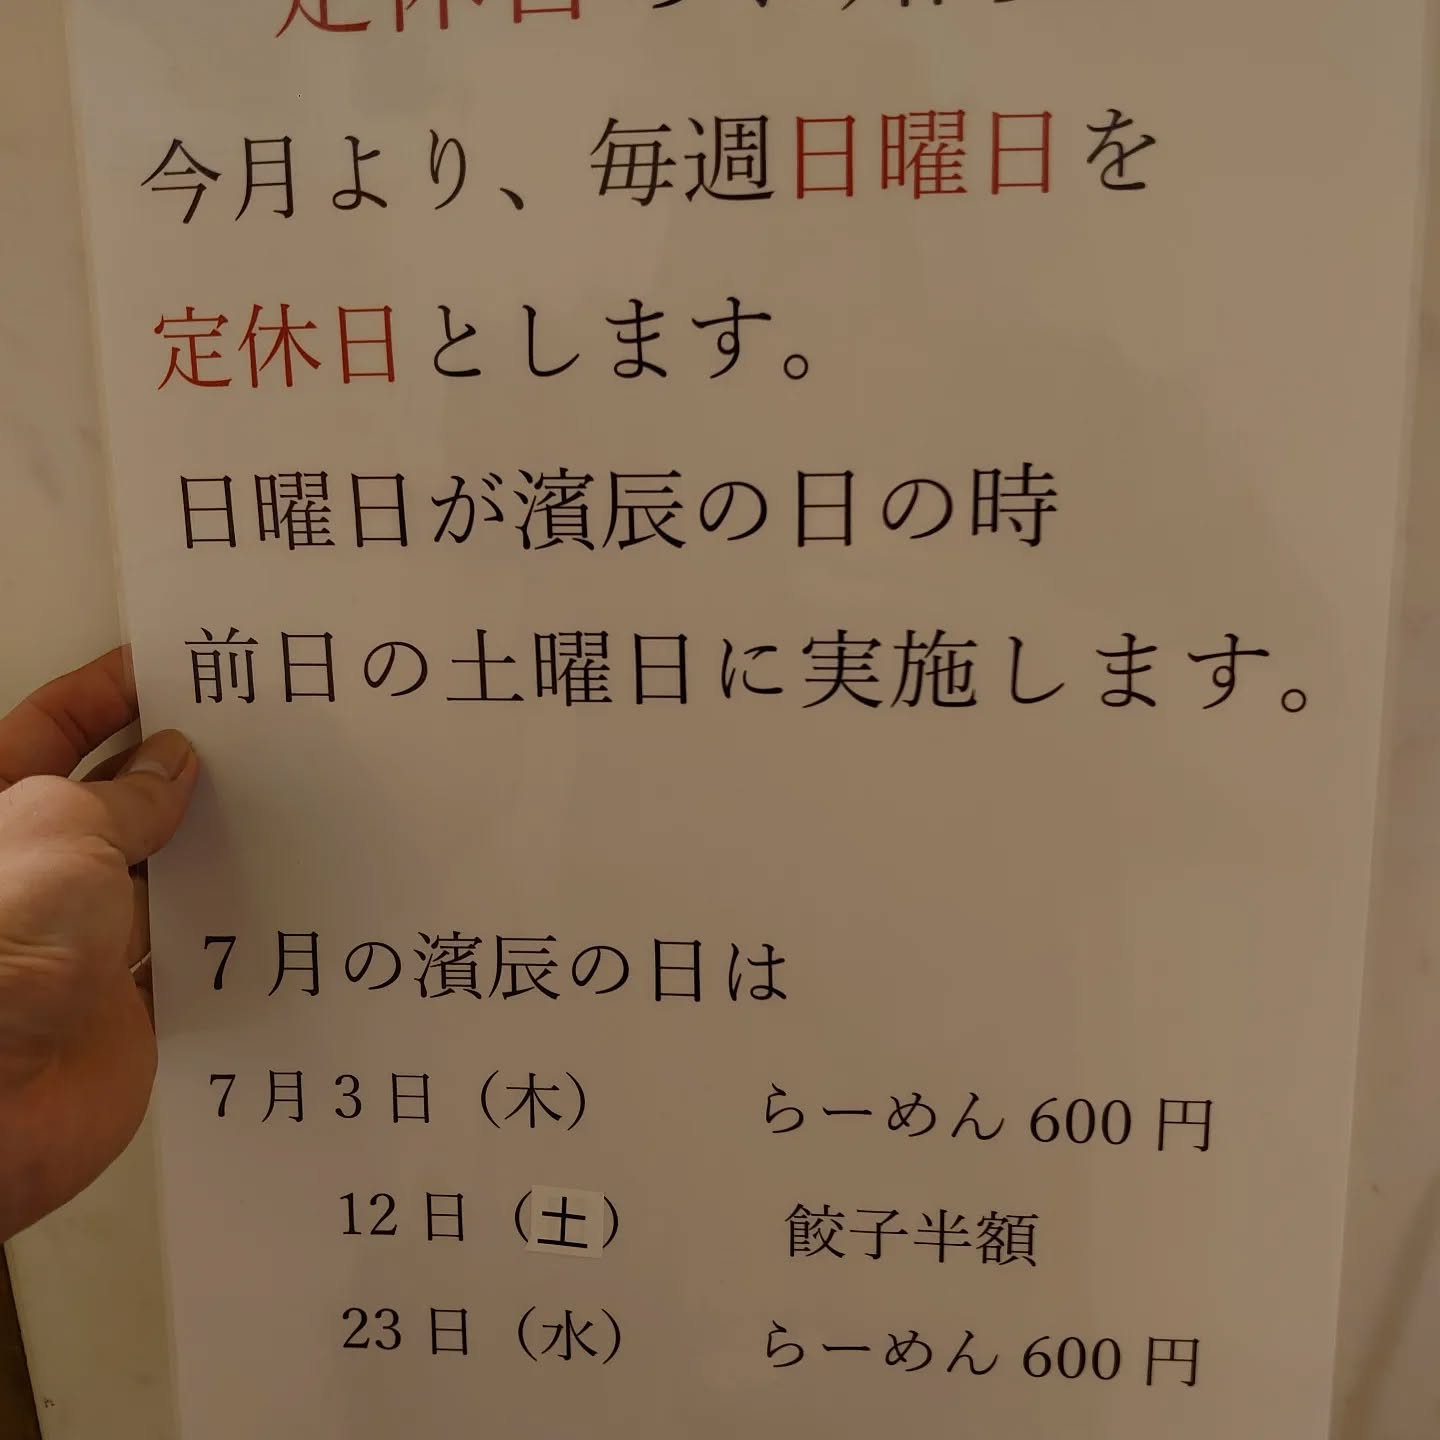 定休日のお知らせ
今月より、毎週日曜日を
定休日とします。
日曜日が濱辰の日の時
前日の土曜日に実施します。
7月の濱辰の日は
7月3日（木） らーめん 600 円
12日（土） 餃子半額
23日（水） らーめん 600 円